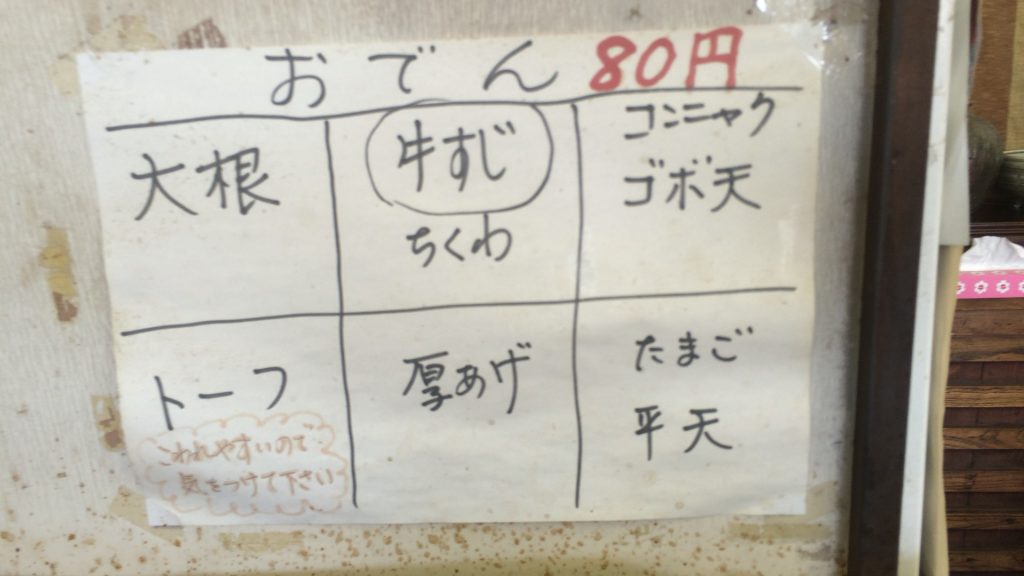 おでん 80円
大根
牛すじ
ちくわ
コンニャク
ゴボ天
トーフ
こわれやすいので
気をつけて下さい
厚あげ
たまご
平天